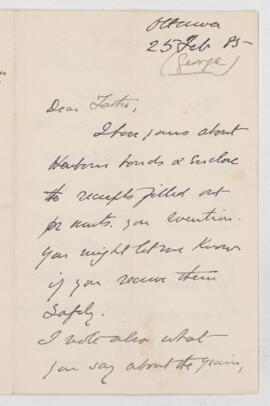 Ottawa
25 Feb 85
(George)
Dear Father,
I have yours about
bonds & enclose
the receipts filled out
for you mention.
You might let me know
if you receive them
safely.
I note also what
you say about the